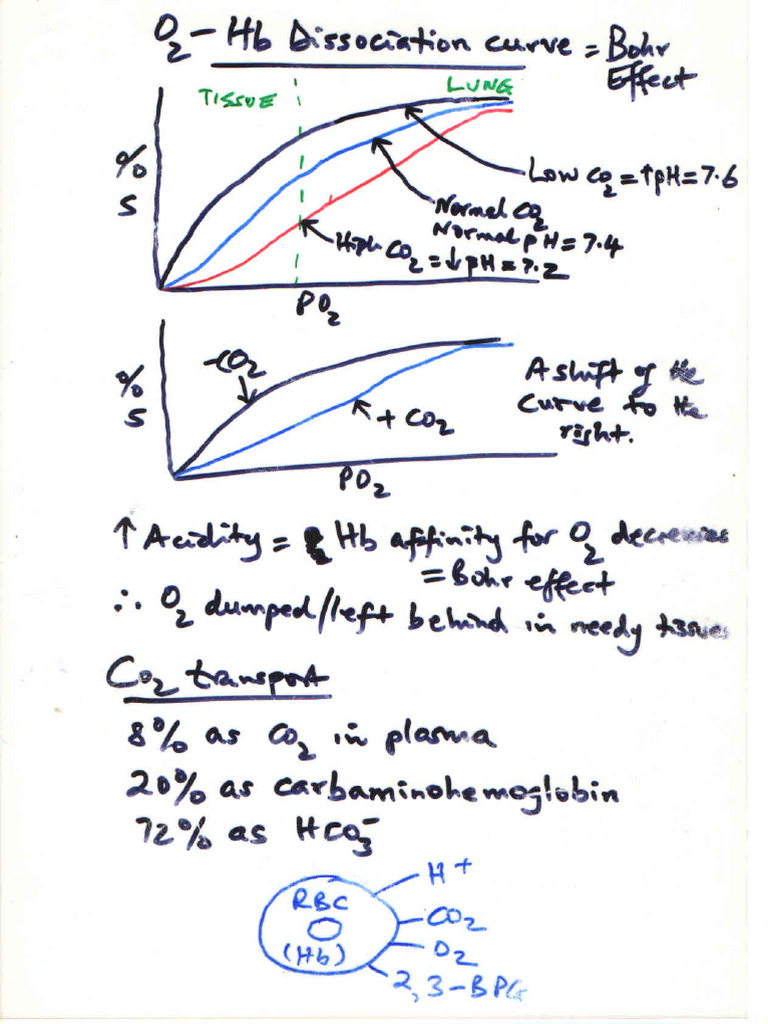 O2 – Hb Dissociation curve = Bohr Effect
TISSUE
LUNG
% S
Low CO2 = ↑pH = 7.6
Normal CO2
Normal pH = 7.4
High CO2 = ↓pH = 7.2
PO2
-CO2
% S
+ CO2
A shift of the
curve to the
right.
PO2
↑ Acidity = Hb affinity for O2 decreases
= Bohr effect
∴ O2 dumped/left behind in needy tissues
CO2 transport
8% as CO2 in plasma
20% as carbaminohemoglobin
72% as HCO3-
H+
RBC
CO2
(Hb)
O2
2,3-BPG